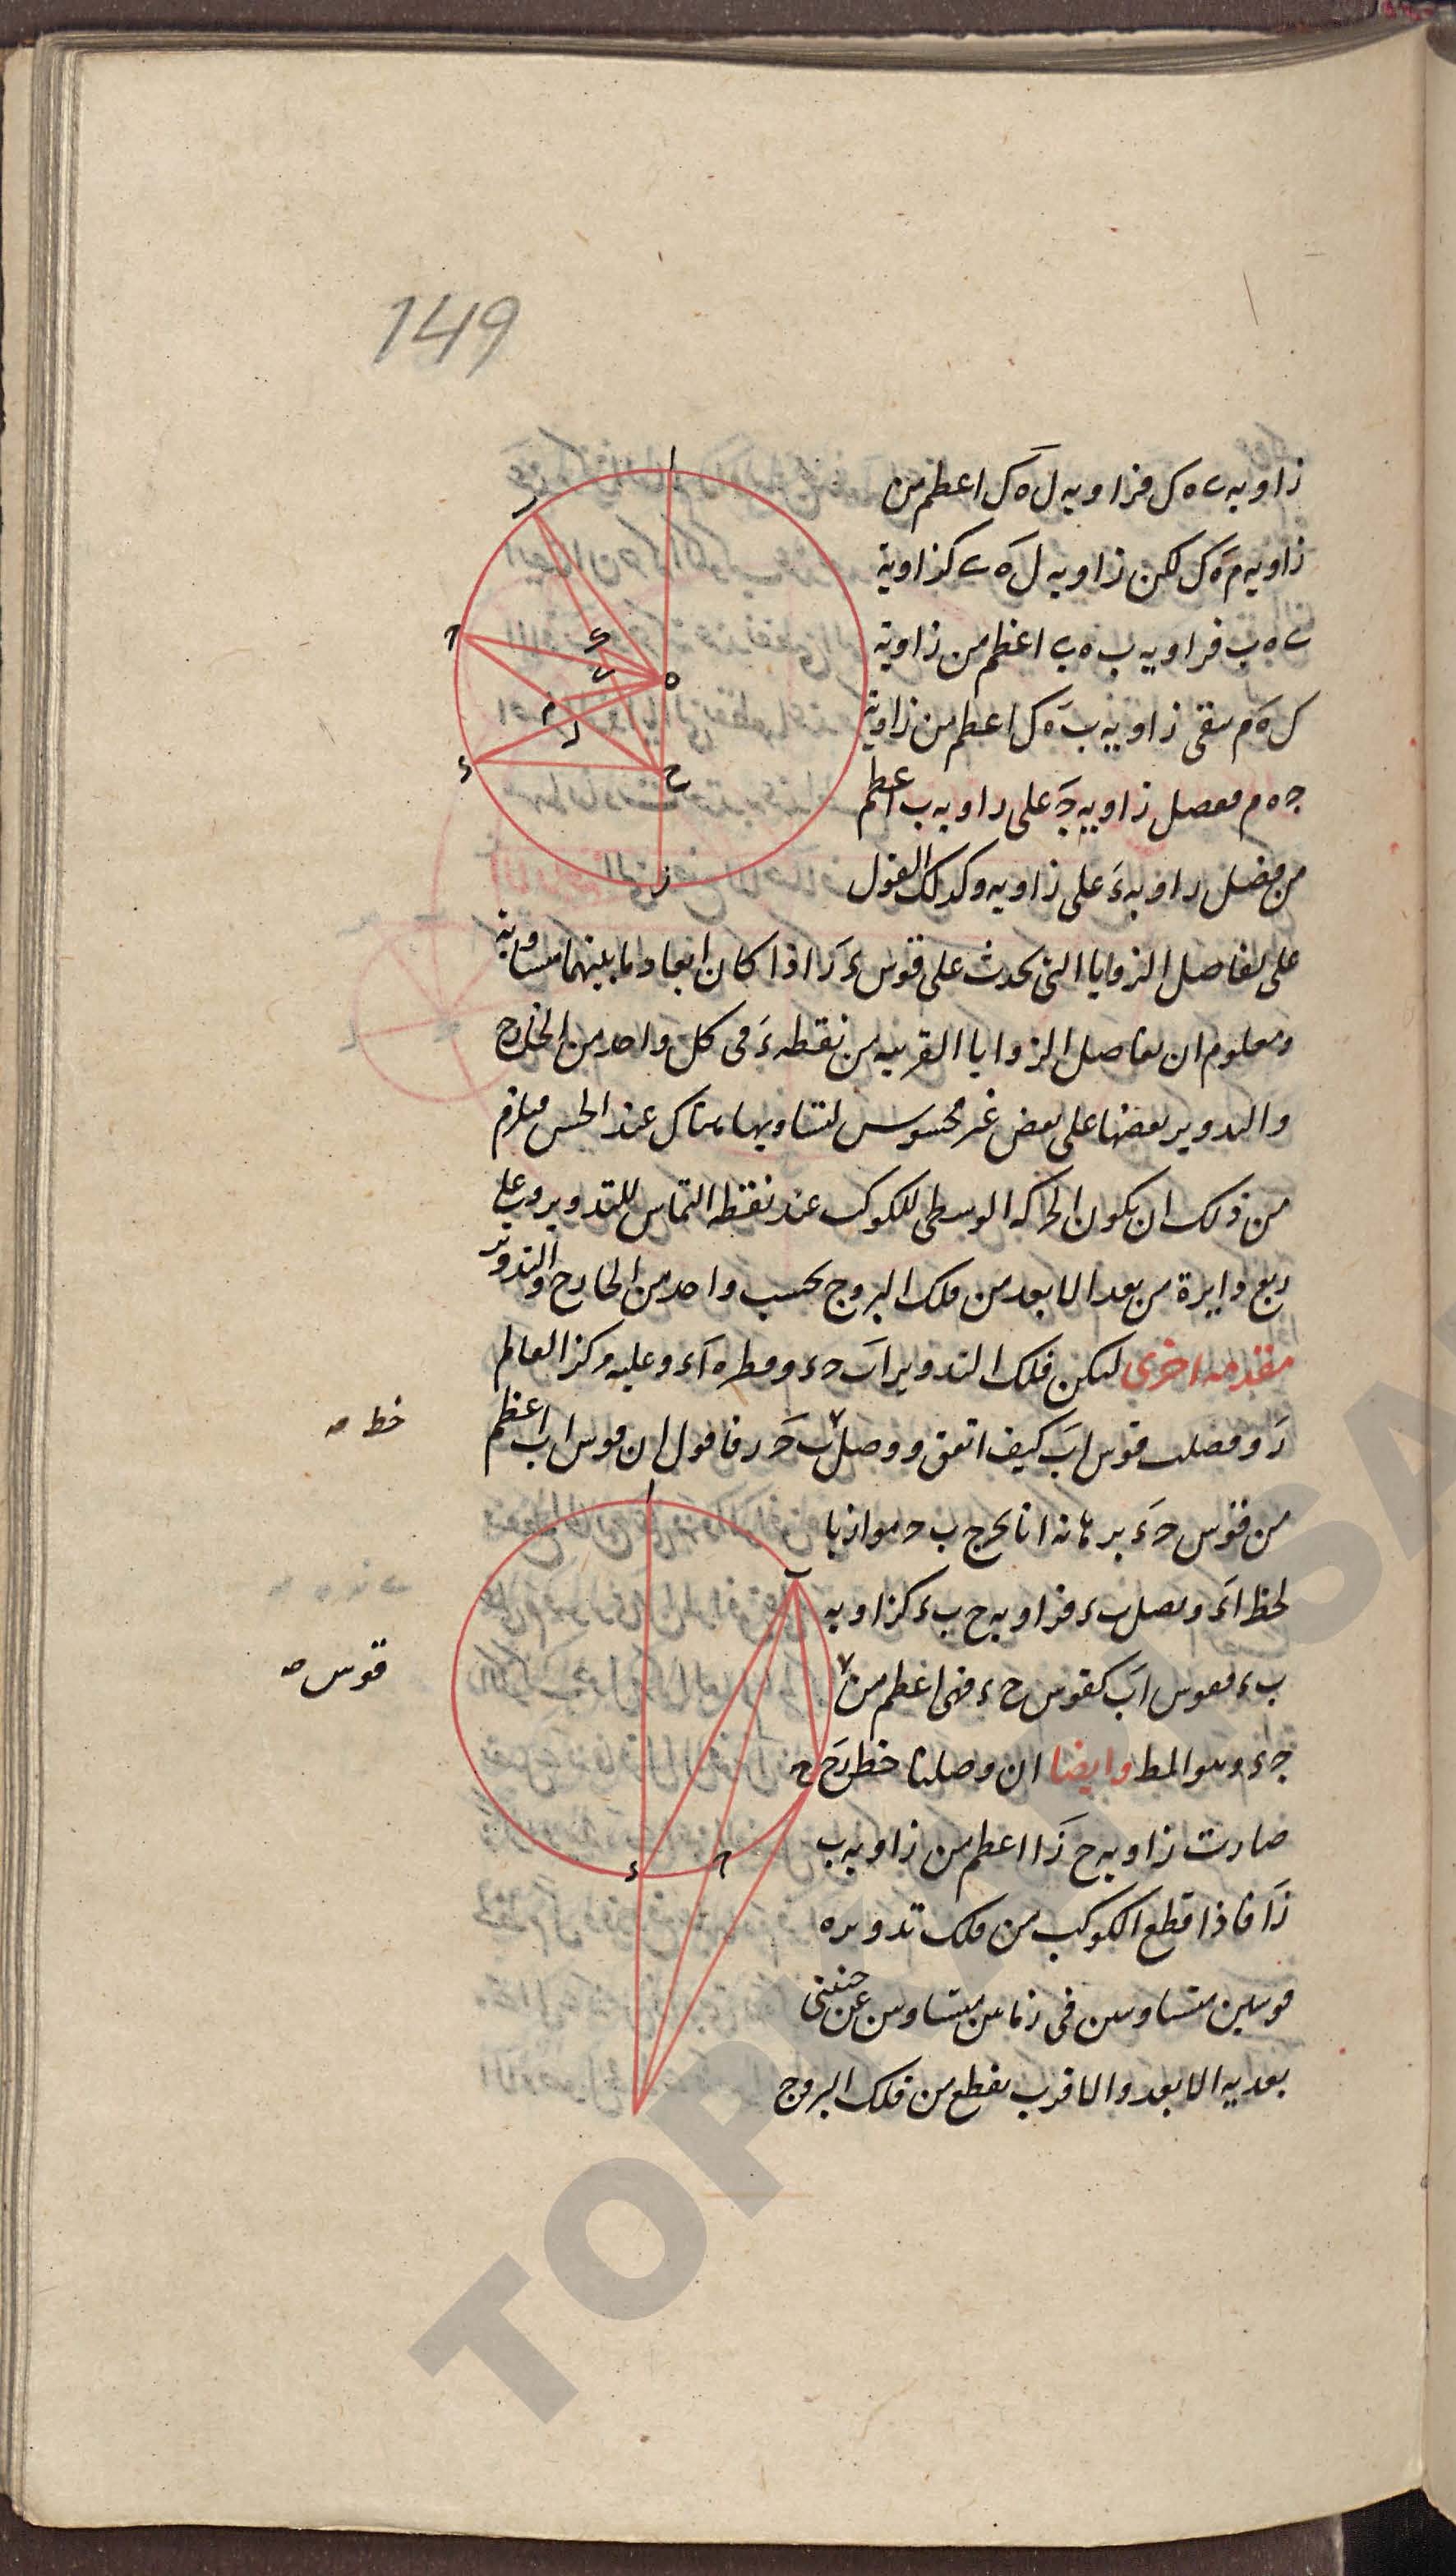 149
زاويه ى ه ك فزاويه ل ه ك اعظم من
زاويه م ه ك لكن زاويه ل ه ى كزاوية
ى ه ب فزاويه ب ه ى اعظم من زاوية
ك ه م سقى زاويه ب ه ك اعظم من زاوية
ج ه م مفصل زاويه ج على زاويه ب اعظم
من فضل زاويه ء على زاويه وكذلك القول
على تفاضل الزوايا التى يحدث على قوس ء ز اذا كان ابعاد ما بينهما متساوية
ومعلوم ان تفاضل الزوايا القريبه من نقطه ء فى كل واحد من الخارج
والتدوير بعضها على بعض غير محسوس عند الحس فيلزم
من ذلك ان يكون الحركه الوسطى للكوكب عند نقطه التماس للتدوير وعلى
ربع دايرة من بعد الابعد من فلك البروج بحسب واحد من الخارج والتدوير
مقدمه اخرى ليكن فلك التدوير اب ج ء وقطره اء وعليه مركز العالم
ز وفصلت قوس اب كيف اتفق ووصل ب ح ز فاقول ان قوس اب اعظم
خط صح
من قوس ح ء برهانه انا نخرج ب ح موازيا
لخط اء ونصل ب ء فزاويه ح ب ء كزاويه
ب ء فقوس اب كقوس ح ء فهى اعظم من
قوس صح
ج ء وهو المط وايضا ان وصلنا خط زح
صارت زاويه ح ز ا اعظم من زاويه ب
ز ا فاذا قطع الكوكب من فلك تدويره
قوسين متساويين فى زمانين متساويين عن جنبتى
بعديه الابعد والاقرب يقطع من فلك البروج
TOPKAPI SA